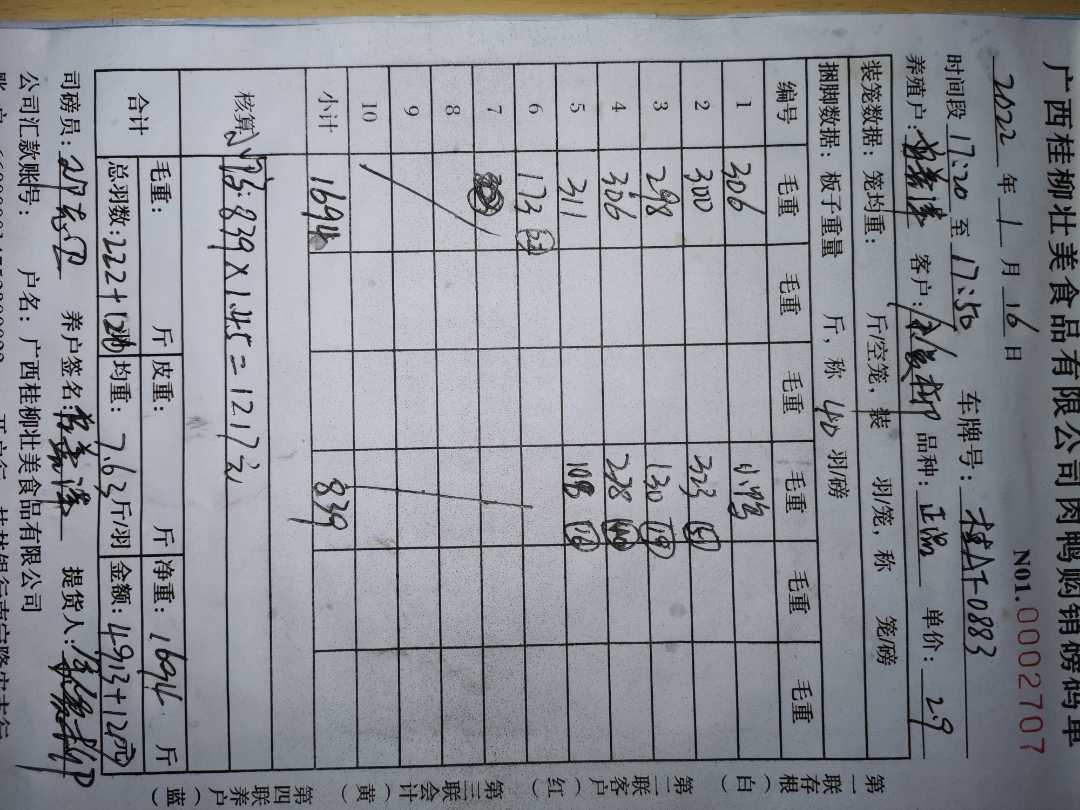 广西桂柳壮美食品有限公司肉鸭购销磅码单
N01. 0002707
2022 年 1 月 16 日 车牌号: 桂AF0883
时间段 17:20 至 17:50
养殖户: 客户: 品种: 单价: 2.9
装笼数据: 笼均重: 斤/空笼, 装 羽/笼, 称 笼/磅
捆脚数据: 板子重量 斤, 称 40 羽/磅
编号 毛重 毛重 毛重 毛重 毛重 毛重
1 306 小鸭
2 300 323
3 298 130
4 306 278
5 311 108
6 173
7
8
9
10
小计 1694 839
核算 小鸭: 839×1.45=1217元
合计 毛重: 斤 皮重: 斤 净重: 1694 斤
总羽数: 222+120 均重: 7.63 斤/羽 金额: 4913+1217
司磅员: 养户签名: 提货人:
公司汇款账号: 户名: 广西桂柳壮美食品有限公司
第一联存根（白） 第二联客户（红） 第三联会计（黄） 第四联养户（蓝）